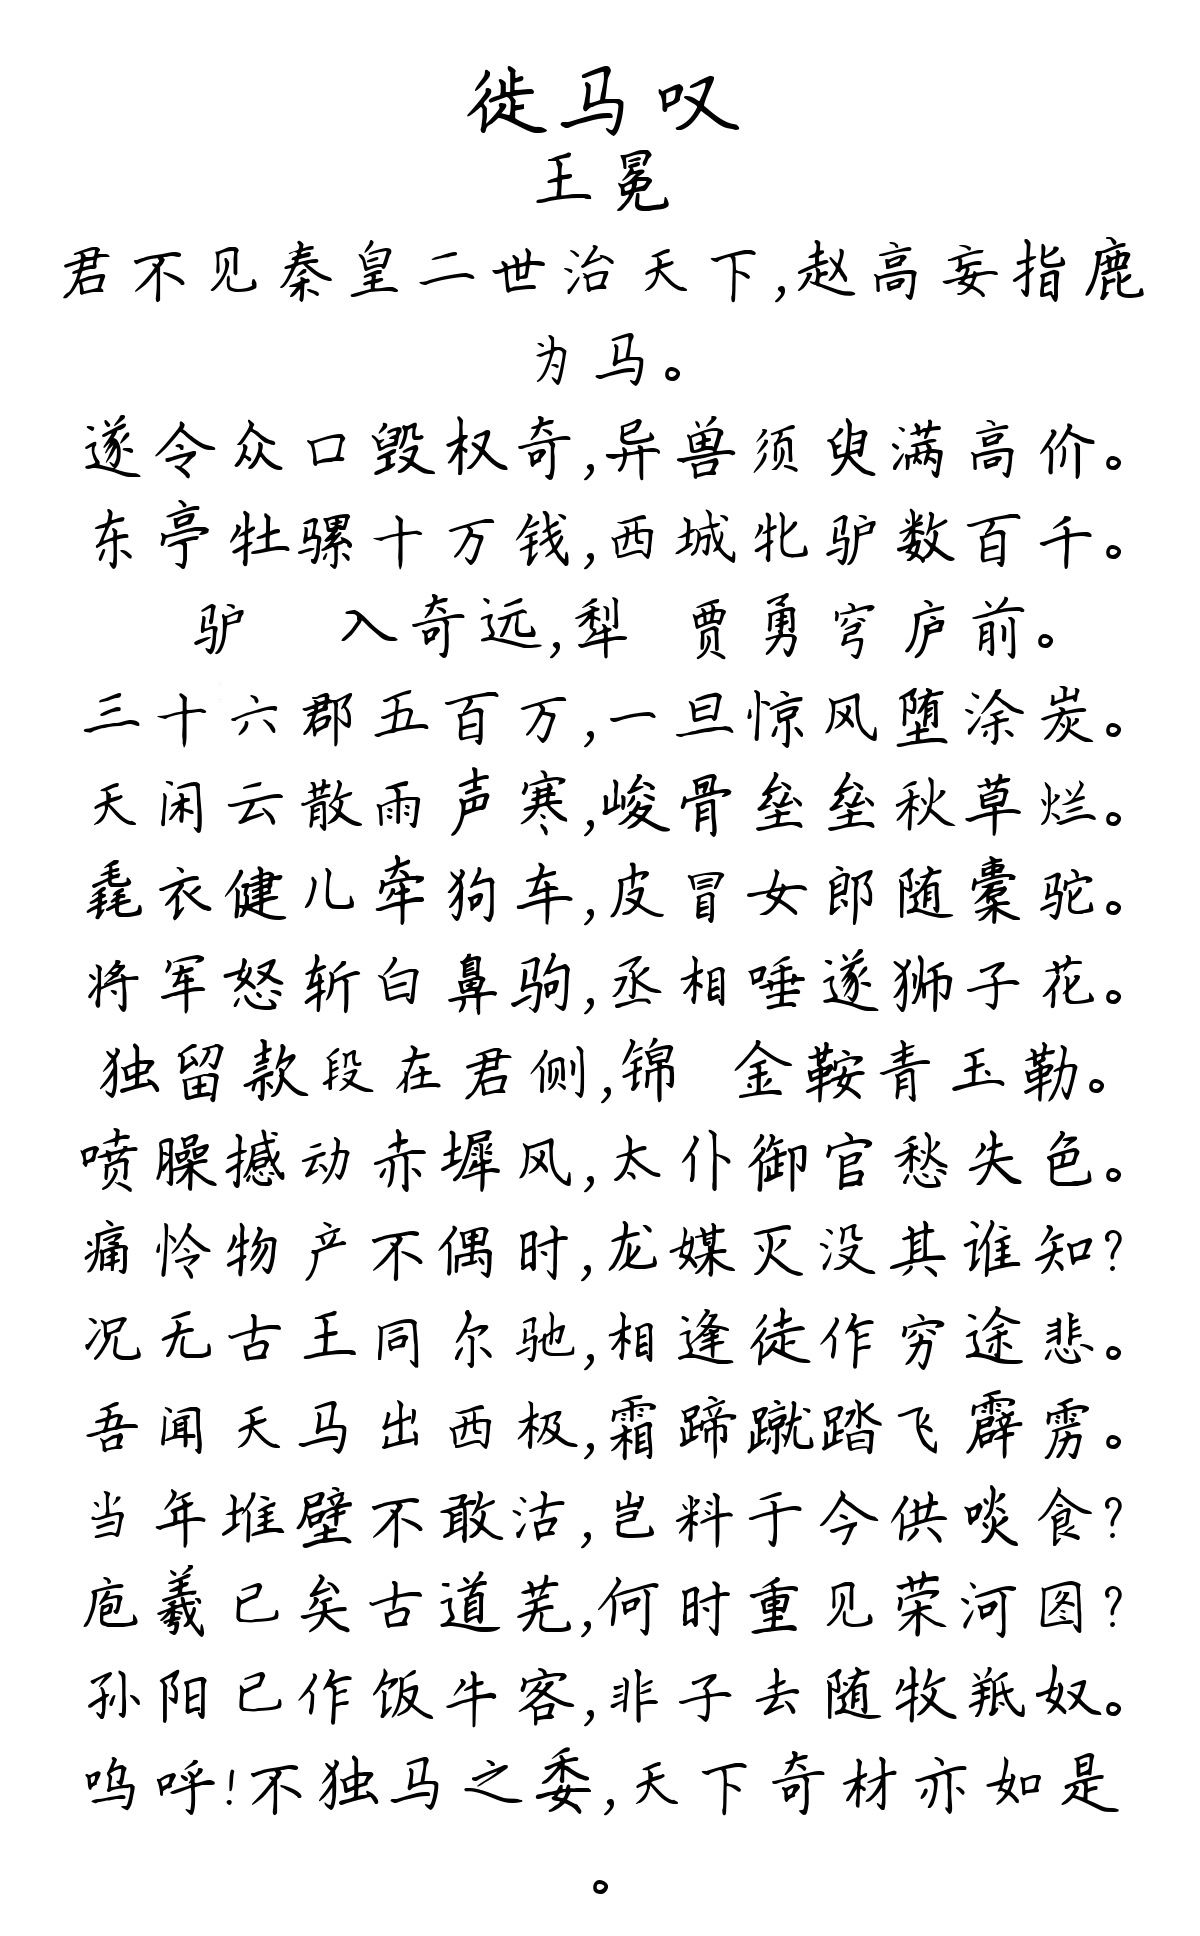 徙马叹
王冕
君不见秦皇二世治天下,赵高妄指鹿
为马。
遂令众口毁权奇,异兽须臾满高价。
东亭牡骡十万钱,西城牝驴数百千。
驴 入奇远,犁 贾勇穹庐前。
三十六郡五百万,一旦惊风堕涂炭。
天闲云散雨声寒,峻骨垒垒秋草烂。
毳衣健儿牵狗车,皮冒女郎随橐驼。
将军怒斩白鼻驹,丞相唾遂狮子花。
独留款段在君侧,锦 金鞍青玉勒。
喷臊撼动赤墀风,太仆御官愁失色。
痛怜物产不偶时,龙媒灭没其谁知?
况无古王同尔驰,相逢徒作穷途悲。
吾闻天马出西极,霜蹄蹴踏飞霹雳。
当年堆壁不敢沽,岂料于今供啖食?
庖羲已矣古道芜,何时重见荣河图?
孙阳已作饭牛客,非子去随牧羝奴。
呜呼!不独马之委,天下奇材亦如是
。